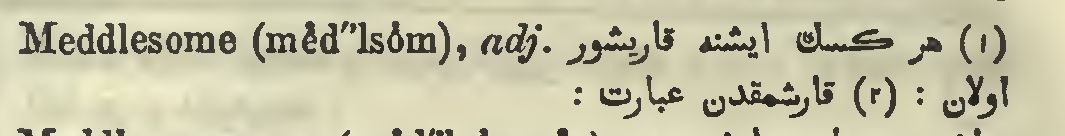 Meddlesome (mĕd″lsŏm), adj. (١) هر كسك ايشنه قاريشور
اولان : (٢) قارشمقدن عبارت :